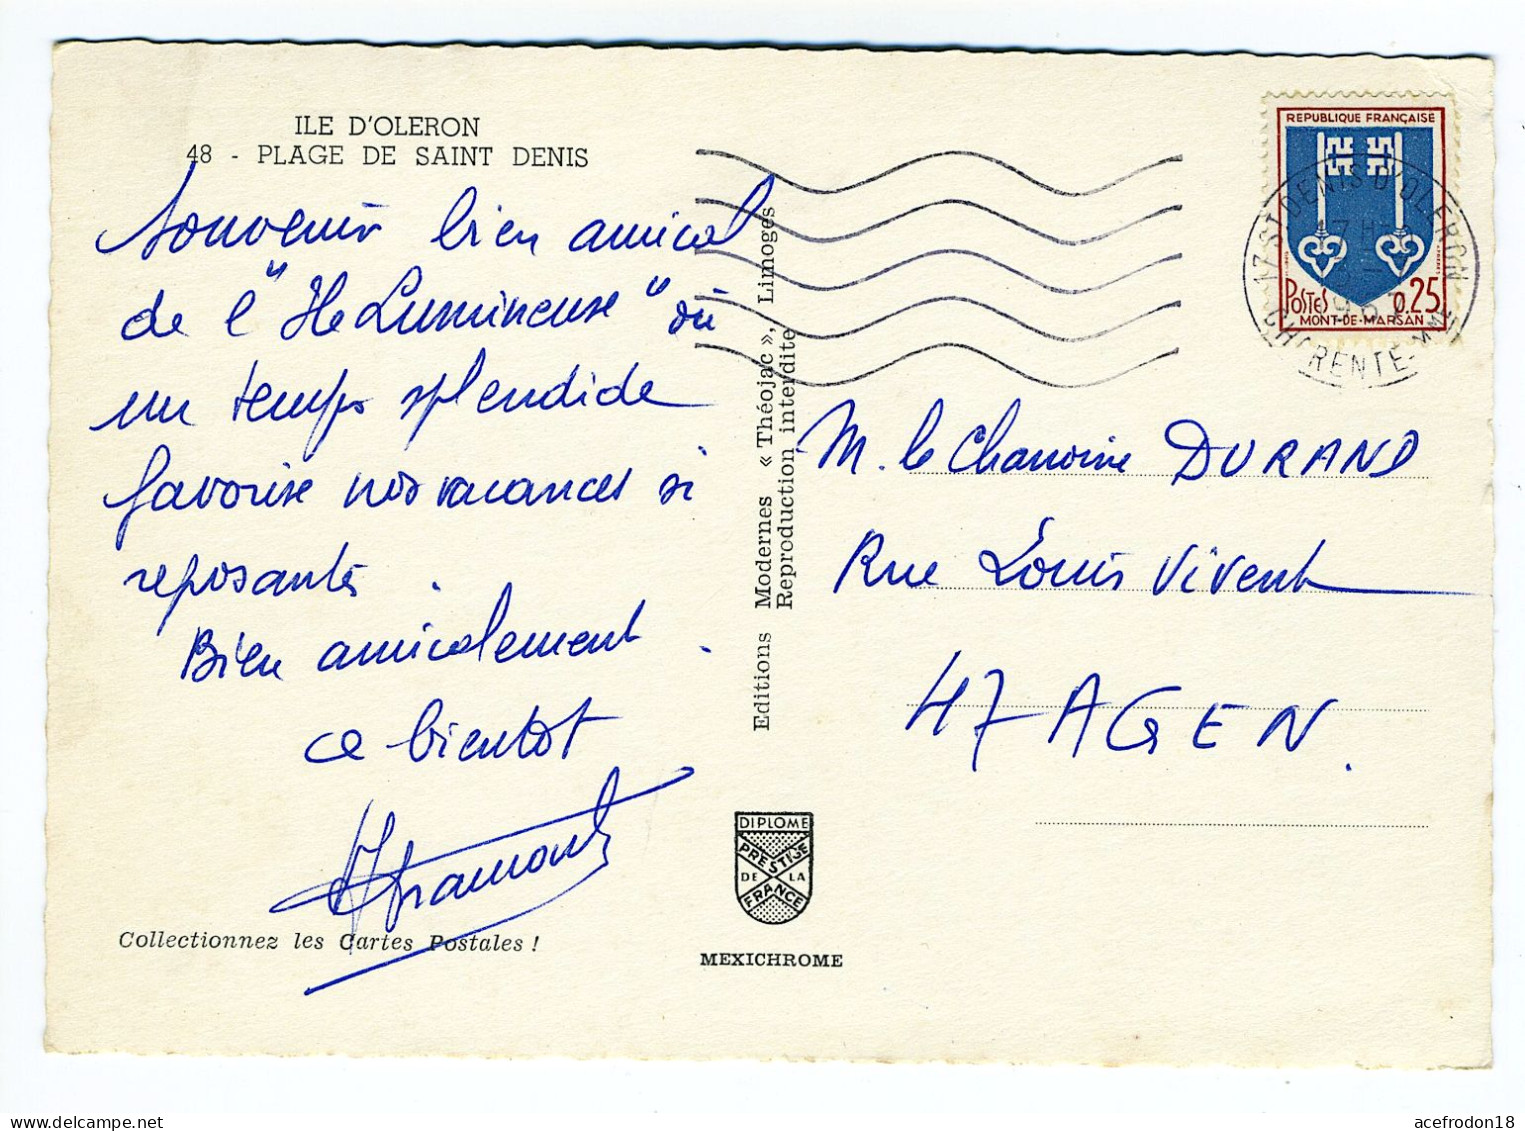 ILE D'OLERON
48 - PLAGE DE SAINT DENIS
Souvenir bien amical
de l' "Ile Lumineuse" où
un temps splendide
favorise nos vacances si
reposantes.
Bien amicalement.
a bientot
Collectionnez les Cartes Postales !
Editions Modernes « Théojac », Limoges
Reproduction interdite
DIPLOME
PRESTIGE
DE LA
FRANCE
MEXICHROME
REPUBLIQUE FRANÇAISE
POSTES 0.25
MONT-DE-MARSAN
17 ST DENIS D'OLERON
17 H
CHARENTE-Mme
M. le Chanoine DURAND
Rue Louis Vivent
47 AGEN.
acefrodon18